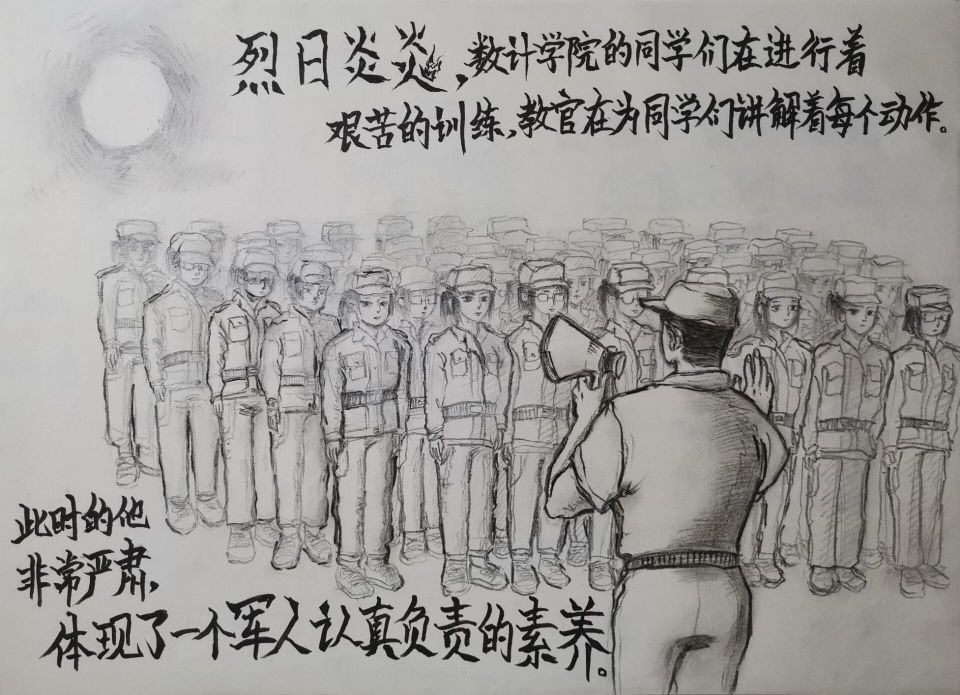 烈日炎炎,数计学院的同学们在进行着
艰苦的训练,教官在为同学们讲解着每个动作。
此时的他
非常严肃,
体现了一个军人认真负责的素养。